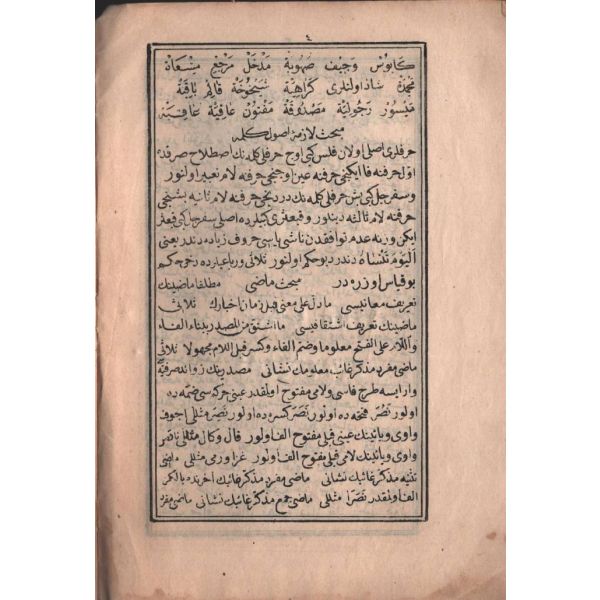 ٤
وجيف صهوبة مدخل مرجع مسعاة
شاذ اولنلرى كراهية شيخوخة قائم باقية
ميسور رجولية مصدوقة مفتون عافية
مبحث لازمة اصول كلمه
حرفلرى اصلى اولان فلس كبى اوچ حرفلى كلمه نك اصطلاح صرفده
اول حرفنه فا ايكنجى حرفنه عين اوچنجى حرفنه لام تعبير اولنور
و سفرجل كبى بش حرفلى كلمه نك دردنجى حرفنه لام ثانيه بشنجى
حرفنه لام ثالثه دينلور و قبعثرى كبيلرده اصلى سفرجل كبى
ايكن وزنه عدم توافقدن ناشى ياسى حروف زياده دندر يعنى
اليوم تنساه دندر ديو حكم اولنور ثلاثى و رباعيلرده دخى حكم
بو قياس اوزره در مبحث ماضى مطلقا ماضينك
تعريف معناييسى ما دل على معنى قبل زمان اخبارك ثلاثى
ماضينك تعريف اشتقاقيسى ما اشتق من المصدر ببناء الفاء
و اللام على الفتح معلوما و ضم الفاء و كسر قبل اللام مجهولا ثلاثى
ماضى مفرد مذكر غائب معلومك نشانى مصدرينك زوائد صرفيه سى
وار ايسه طرح فاسى و لامى مفتوح اولقدر عينى حركه سى ضمه ده
اولور نصر فتحه ده اولور نصر كسره ده اولور نصر مثللى اجوف
واوى و يائينك عينى قبلى مفتوح الف اولور قال و كال مثللى ناقص
واوى و يائينك لامى قبلى مفتوح الف اولور غزا و رمى مثللى ماضى
تثنيه مذكر غائبك نشانى ماضى مفرد مذكر غائبك اخرنده
الف اولمقدر نصرا مثللى ماضى جمع مذكر غائبك نشانى ماضى مفرد